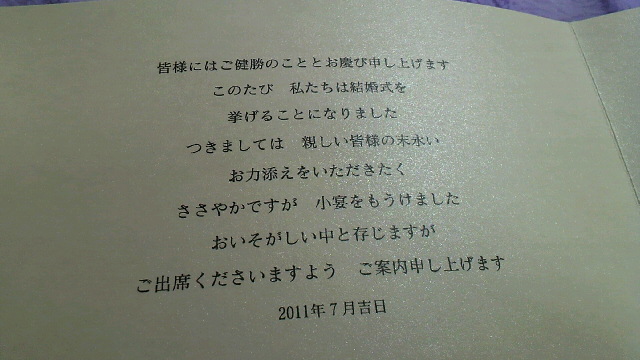 皆様にはご健勝のこととお慶び申し上げます
このたび　私たちは結婚式を
挙げることになりました
つきましては　親しい皆様の末永い
お力添えをいただきたく
ささやかですが　小宴をもうけました
おいそがしい中と存じますが
ご出席くださいますよう　ご案内申し上げます
2011年7月吉日